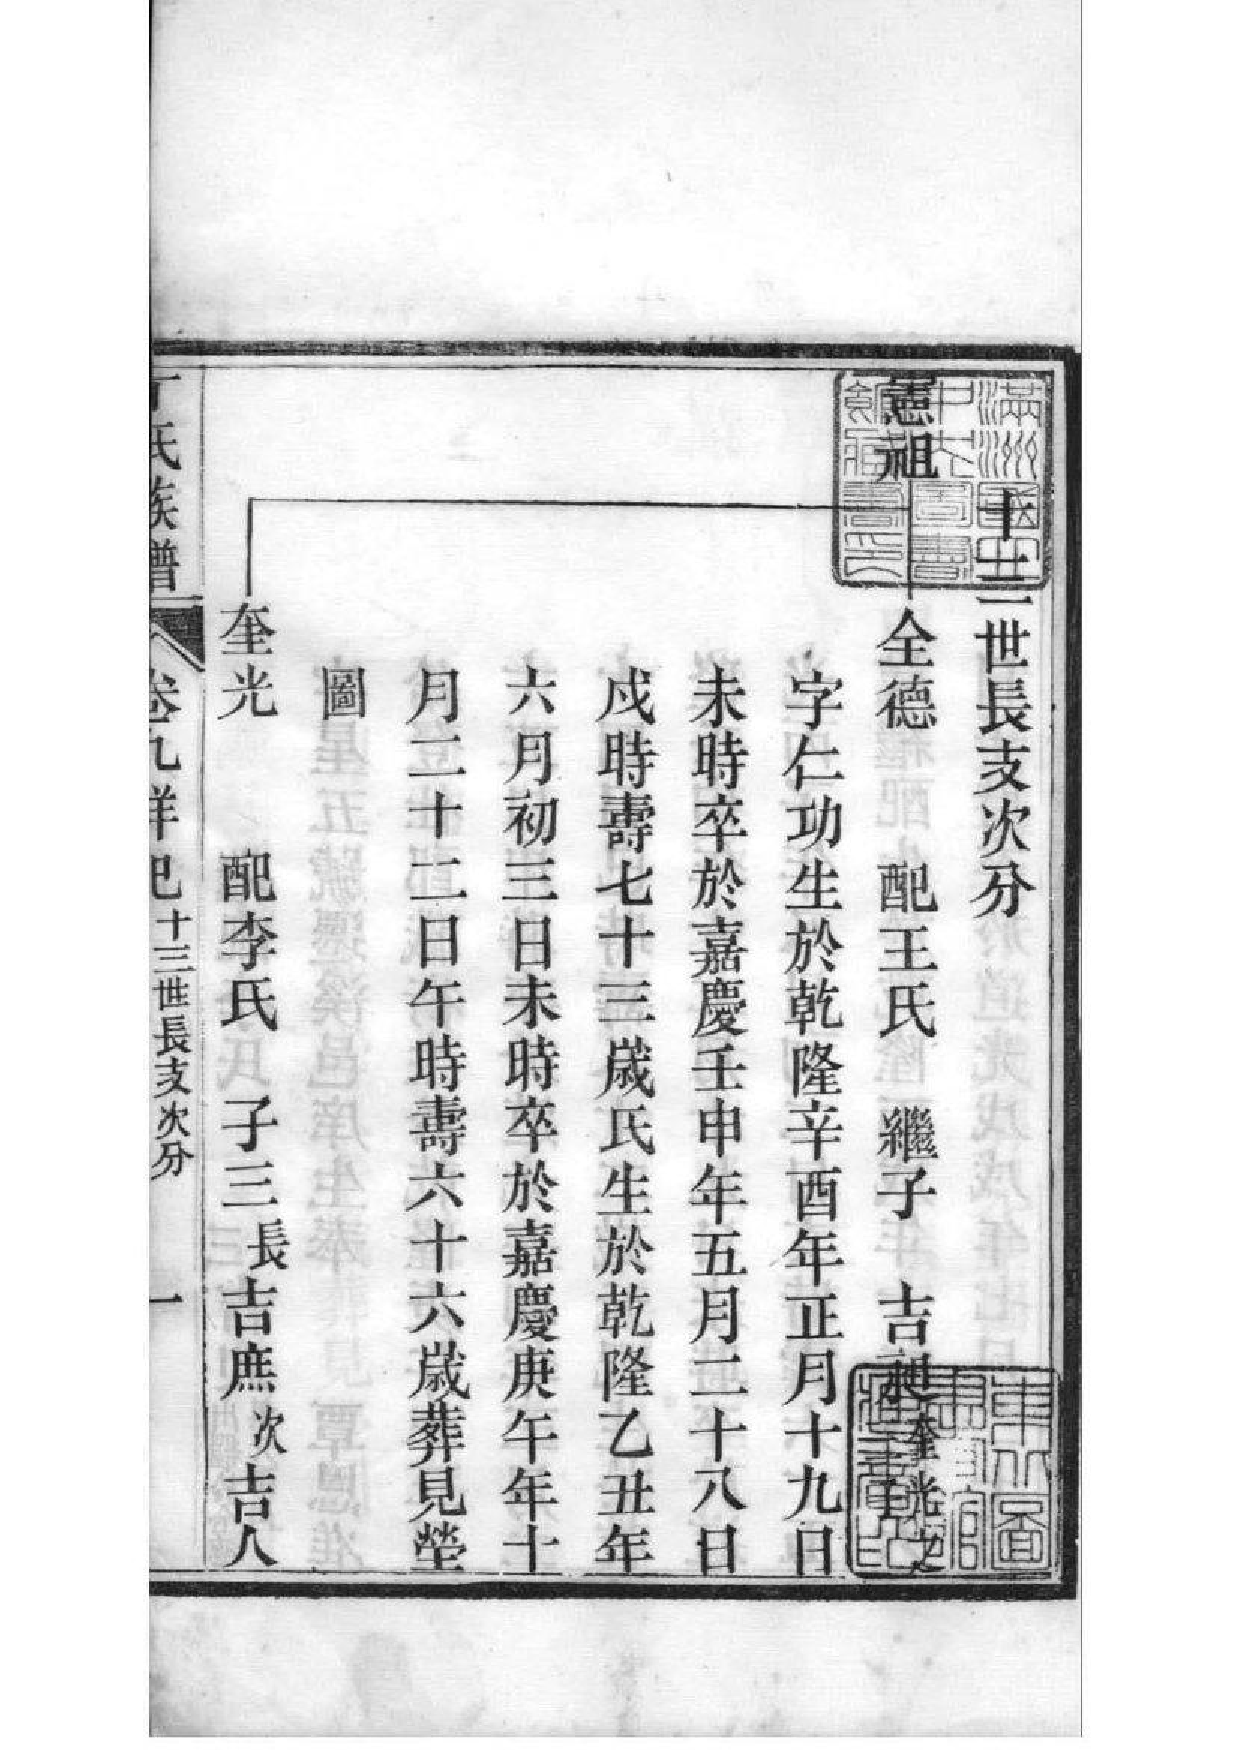 十三世長支次分
憲祖
全德 配王氏 繼子 吉昶 奎光之
字仁功生於乾隆辛酉年正月十九日
未時卒於嘉慶壬申年五月二十八日
戌時壽七十三歲氏生於乾隆乙丑年
六月初三日未時卒於嘉慶庚午年十
月二十二日午時壽六十六歲葬見塋
圖
奎光 配李氏 子三 長吉庶 次吉人
丁氏族譜 卷九詳記 十三世長支次分 一